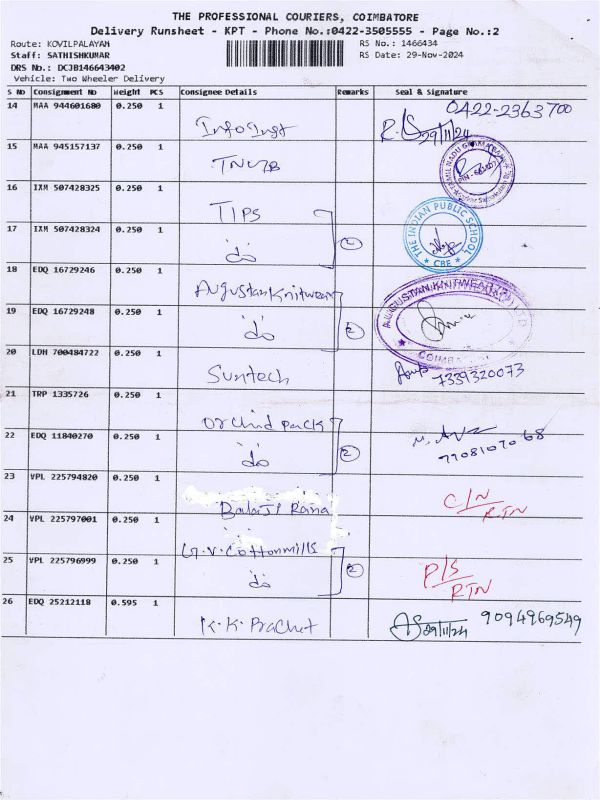 THE PROFESSIONAL COURIERS, COIMBATORE
Delivery Runsheet - KPT - Phone No.:0422-3505555 - Page No.:2
Route: KOVILPALAYAM RS No.: 1466434
Staff: SATHISHKUMAR RS Date: 29-Nov-2024
DRS No.: DCJB146643402
Vehicle: Two Wheeler Delivery
S No Consignment No Weight PCS Consignee Details Remarks Seal & Signature
14 MAA 944601680 0.250 1 0422-2363700
InfoInst 29/11/24
15 MAA 945157137 0.250 1
TAMIL NADU GRAMA BANK
16 IXM 507428325 0.250 1
TIPS THE INDIAN PUBLIC SCHOOL
17 IXM 507428324 0.250 1 2
do CBE
18 EDQ 16729246 0.250 1
Augustan Knitwear AUGUSTAN KNITWEAR
19 EDQ 16729248 0.250 1
do 2
20 LDH 700484722 0.250 1
Suntech 7339320073
21 TRP 1335726 0.250 1
Orchid pack
22 EDQ 11840270 0.250 1
do 2 7708107068
23 VPL 225794820 0.250 1
Balaji Raina C/N RTN
24 VPL 225797001 0.250 1
G.V. Cottonmills
25 VPL 225796999 0.250 1 2
do P/S RTN
26 EDQ 25212118 0.595 1
K.K. 29/11/24 9094969549